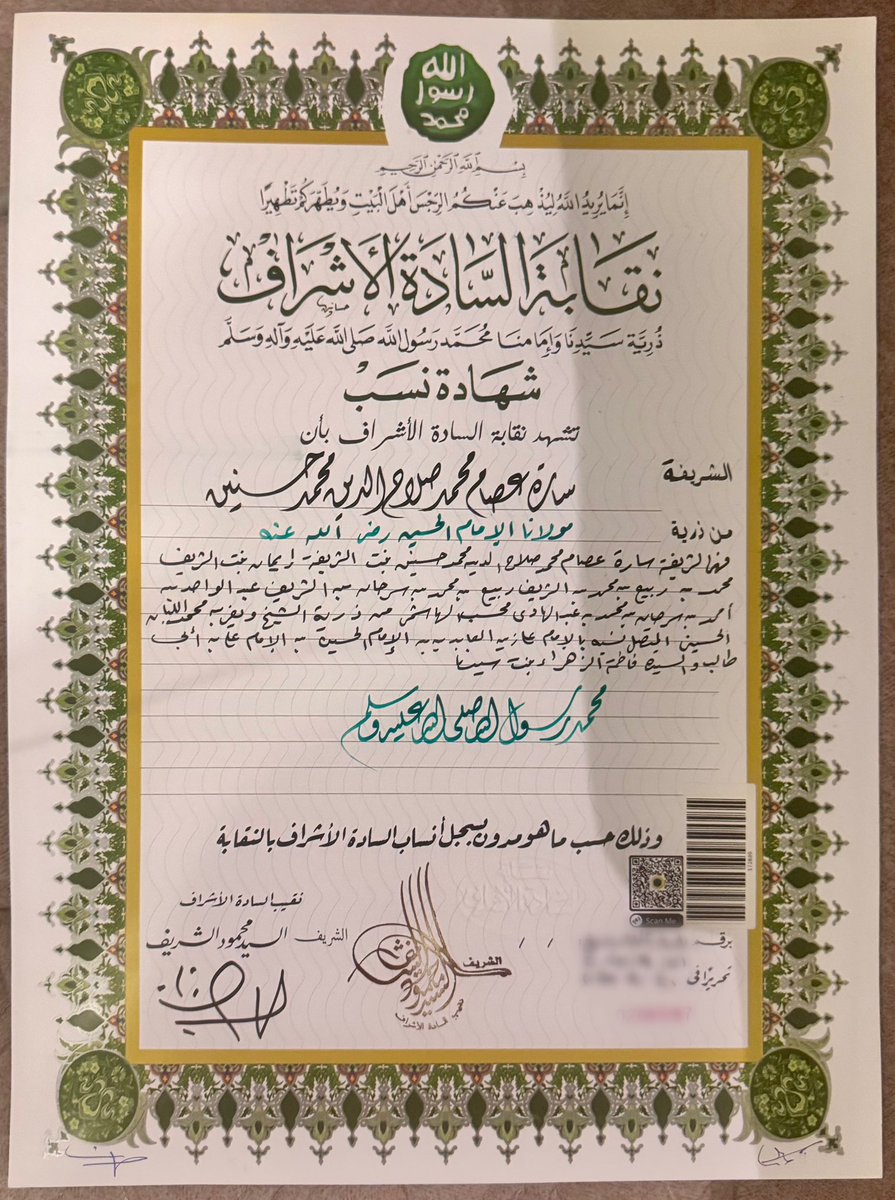 الله
رسول
محمد
بسم الله الرحمن الرحيم
إِنَّمَا يُرِيدُ اللَّهُ لِيُذْهِبَ عَنْكُمُ الرِّجْسَ أَهْلَ الْبَيْتِ وَيُطَهِّرَكُمْ تَطْهِيرًا
نقابة السَّادة الأشراف
ذُرِيَّة سَيِّدِنَا وَإِمَامِنَا مُحَمَّد رَسُول اللَّه صَلَّى اللَّه عَلَيْهِ وَآلِهِ وَسَلَّم
شهادة نسب
تشهد نقابة السادة الأشراف بأن
الشريفة سارة عصام محمد صلاح الدين محمد حسنين
من ذرية مولانا الإمام الحسين رضى الله عنه
فهى الشريفة سارة عصام محمد صلاح الدين محمد حسنين بنت الشريفة إيمان بنت الشريف
محمد بن ربيع بن محمد بن الشريف ربيع بن محمد بن سرحان بن الشريف عبد الواحد بن
أحمد بن سرحان بن محمد بن عبد الهادى محسب الهاشمى من ذرية الشيخ محمد
الحسينى المتصل نسبه بالإمام على زين العابدين بن الإمام الحسين بن الإمام على بن أبى
طالب والسيدة فاطمة الزهراء بنت سيدنا
محمد رسول الله صلى الله عليه وسلم
وذلك حسب ما هو مدون بسجل أنساب السادة الأشراف بالنقابة
Scan Me
نقيب السادة الأشراف
الشريف السيد محمود الشريف
الشريف
السيد محمود الشريف
نقيب السادة الأشراف
برقم
تحريرًا فى / /